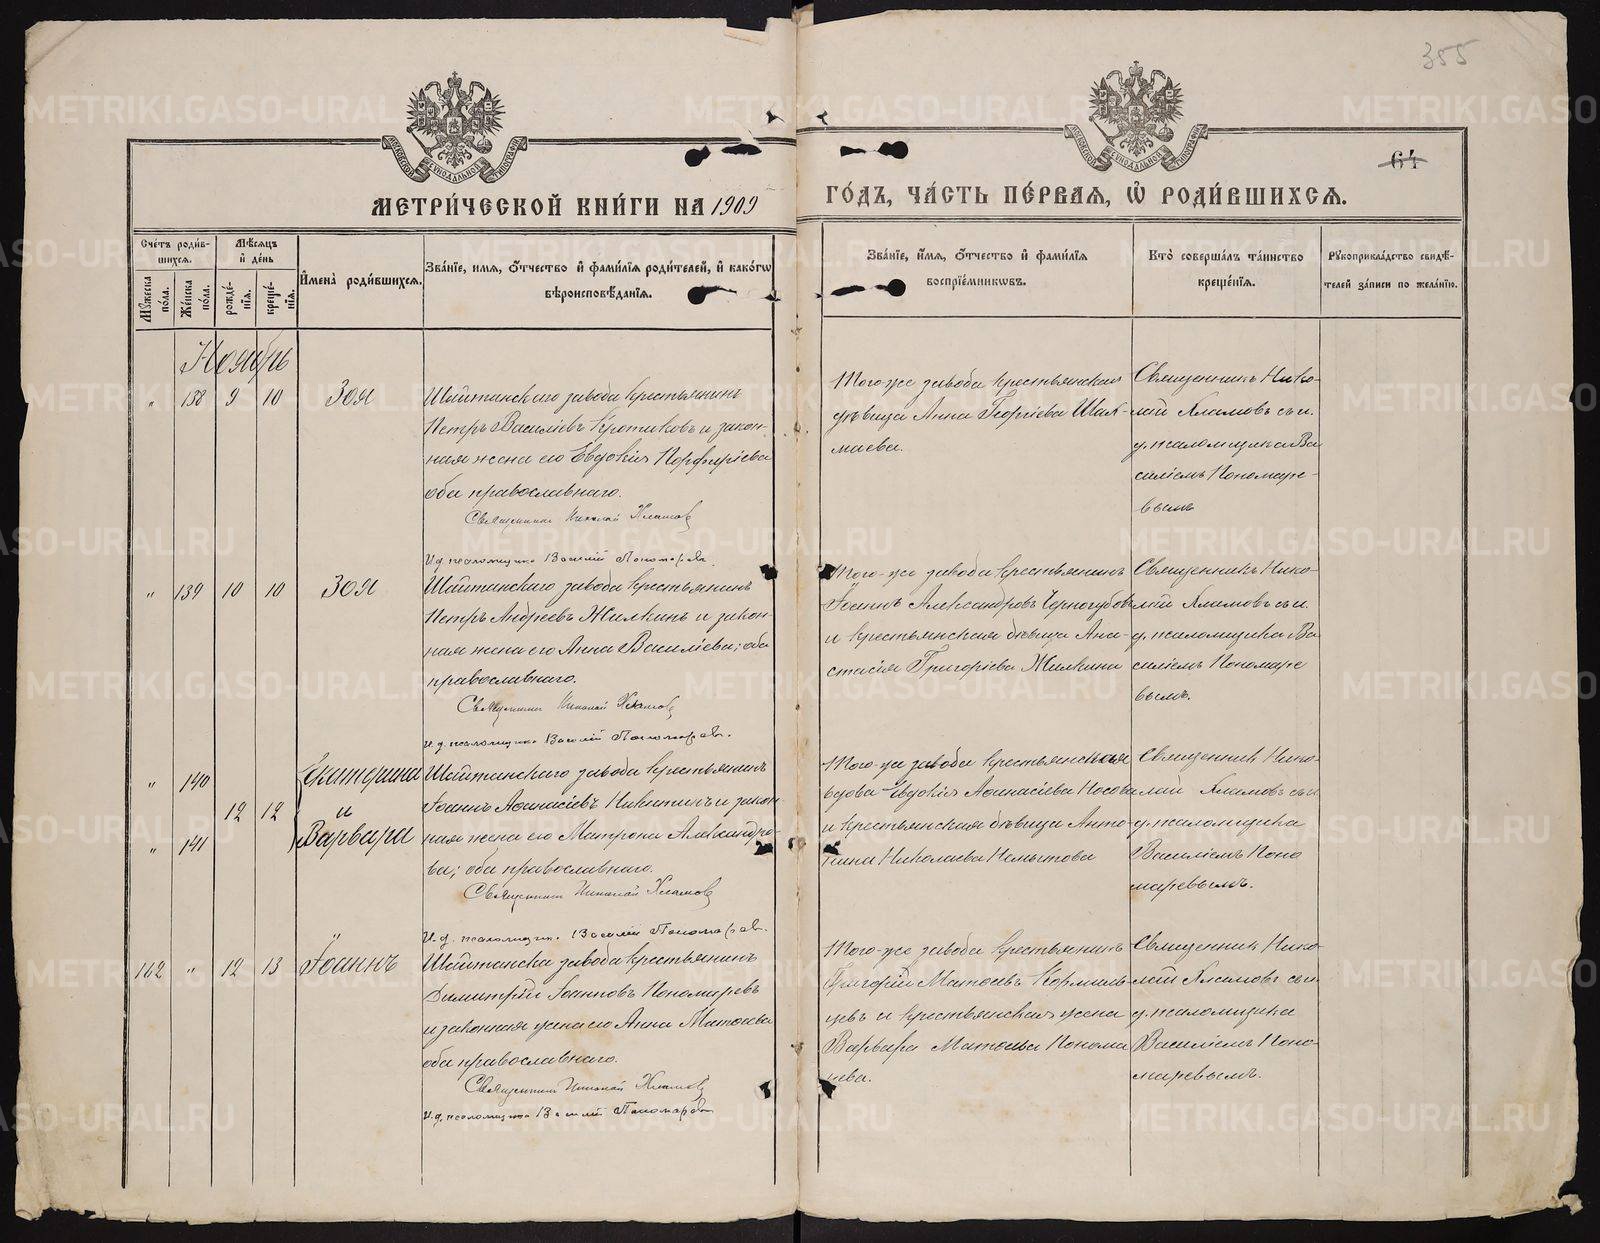 355
64
МЕТРИ́ЧЕСКОЙ КНИ́ГИ НА 1909
ГО́ДЪ, ЧА́СТЬ ПЕ́РВАЯ, Ѽ РОДИ́ВШИХСЯ.
Сче́тъ роди́вшихся.
Мꙋ́жеска по́ла.
Же́нска по́ла.
Мѣ́сяцъ и҆ де́нь
рожде́нїя.
креще́нїя.
И҆мена̀ роди́вшихся.
Зва́нїе, и҆мя, ѻ҆́тчество и҆ фами́лїя роди́телей, и҆ како́гѡ
вѣроисповѣ́данїя.
Зва́нїе, и҆́мя, ѻ҆́тчество и҆ фами́лїя
воспрїе́мникѡвъ.
Кто̀ соверша́лъ та́инство
креще́нїя.
Рꙋкоприкла́дство свидѣ́-
телей за́писи по жела́нїю.
Ноябрь
" 138 9 10 Зоя
Шайтанскаго завода крестьянинъ
Петръ Васильевъ Кротиковъ и закон-
ная жена его Евдокія Порфиріева
оба православнаго.
Священникъ Николай Хламовъ
И.д. псаломщика Василій Пономаревъ.
Того-же завода крестьянская
дѣвица Анна Георгіева Шак-
маева.
Священникъ Нико-
лай Хламовъ съ и.
д. псаломщика Ва
силіемъ Пономаре-
вымъ
" 139 10 10 Зоя
Шайтанскаго завода крестьянинъ
Петръ Андреевъ Жилкинъ и закон-
ная жена его Анна Васильева; оба
православнаго.
Священникъ Николай Хламовъ
И.д. псаломщика Василій Пономаревъ.
Того-же завода крестьянинъ
Іоаннъ Александровъ Черногубовъ
и крестьянская дѣвица Ана-
стасія Григоріева Жилкина
Священникъ Нико-
лай Хламовъ съ и.
д. псаломщика Ва
силіемъ Пономаре
вымъ.
" 140
12 12
" 141
Екатерина
и
Варвара
Шайтанскаго завода крестьянинъ
Іоаннъ Аѳанасіевъ Никитинъ и закон-
ная жена его Матрона Александро-
ва; оба православнаго.
Священникъ Николай Хламовъ
И.д. псаломщика Василій Пономаревъ.
Того-же завода крестьянская
вдова Евдокія Аѳанасіева Носова
и крестьянская дѣвица Анто-
нина Николаева Немытова
Священникъ Нико-
лай Хламовъ съ и
д. псаломщика
Василіемъ Поно
маревымъ.
142 " 12 13 Іоаннъ
Шайтанска завода крестьянинъ
Димитрій Іоанновъ Пономаревъ
и законная жена его Анна Матѳеева
оба православнаго.
Священникъ Николай Хламовъ
И.д. псаломщика Василій Пономаревъ
Того-же завода крестьянинъ
Григорій Матѳеевъ Кормиль-
цевъ и крестьянская жена
Варвара Матѳеева Понома
рева.
Священникъ Нико-
лай Хламовъ съ и.
д. псаломщика
Василіемъ Поно-
маревымъ.
METRIKI.GASO-URAL.RU